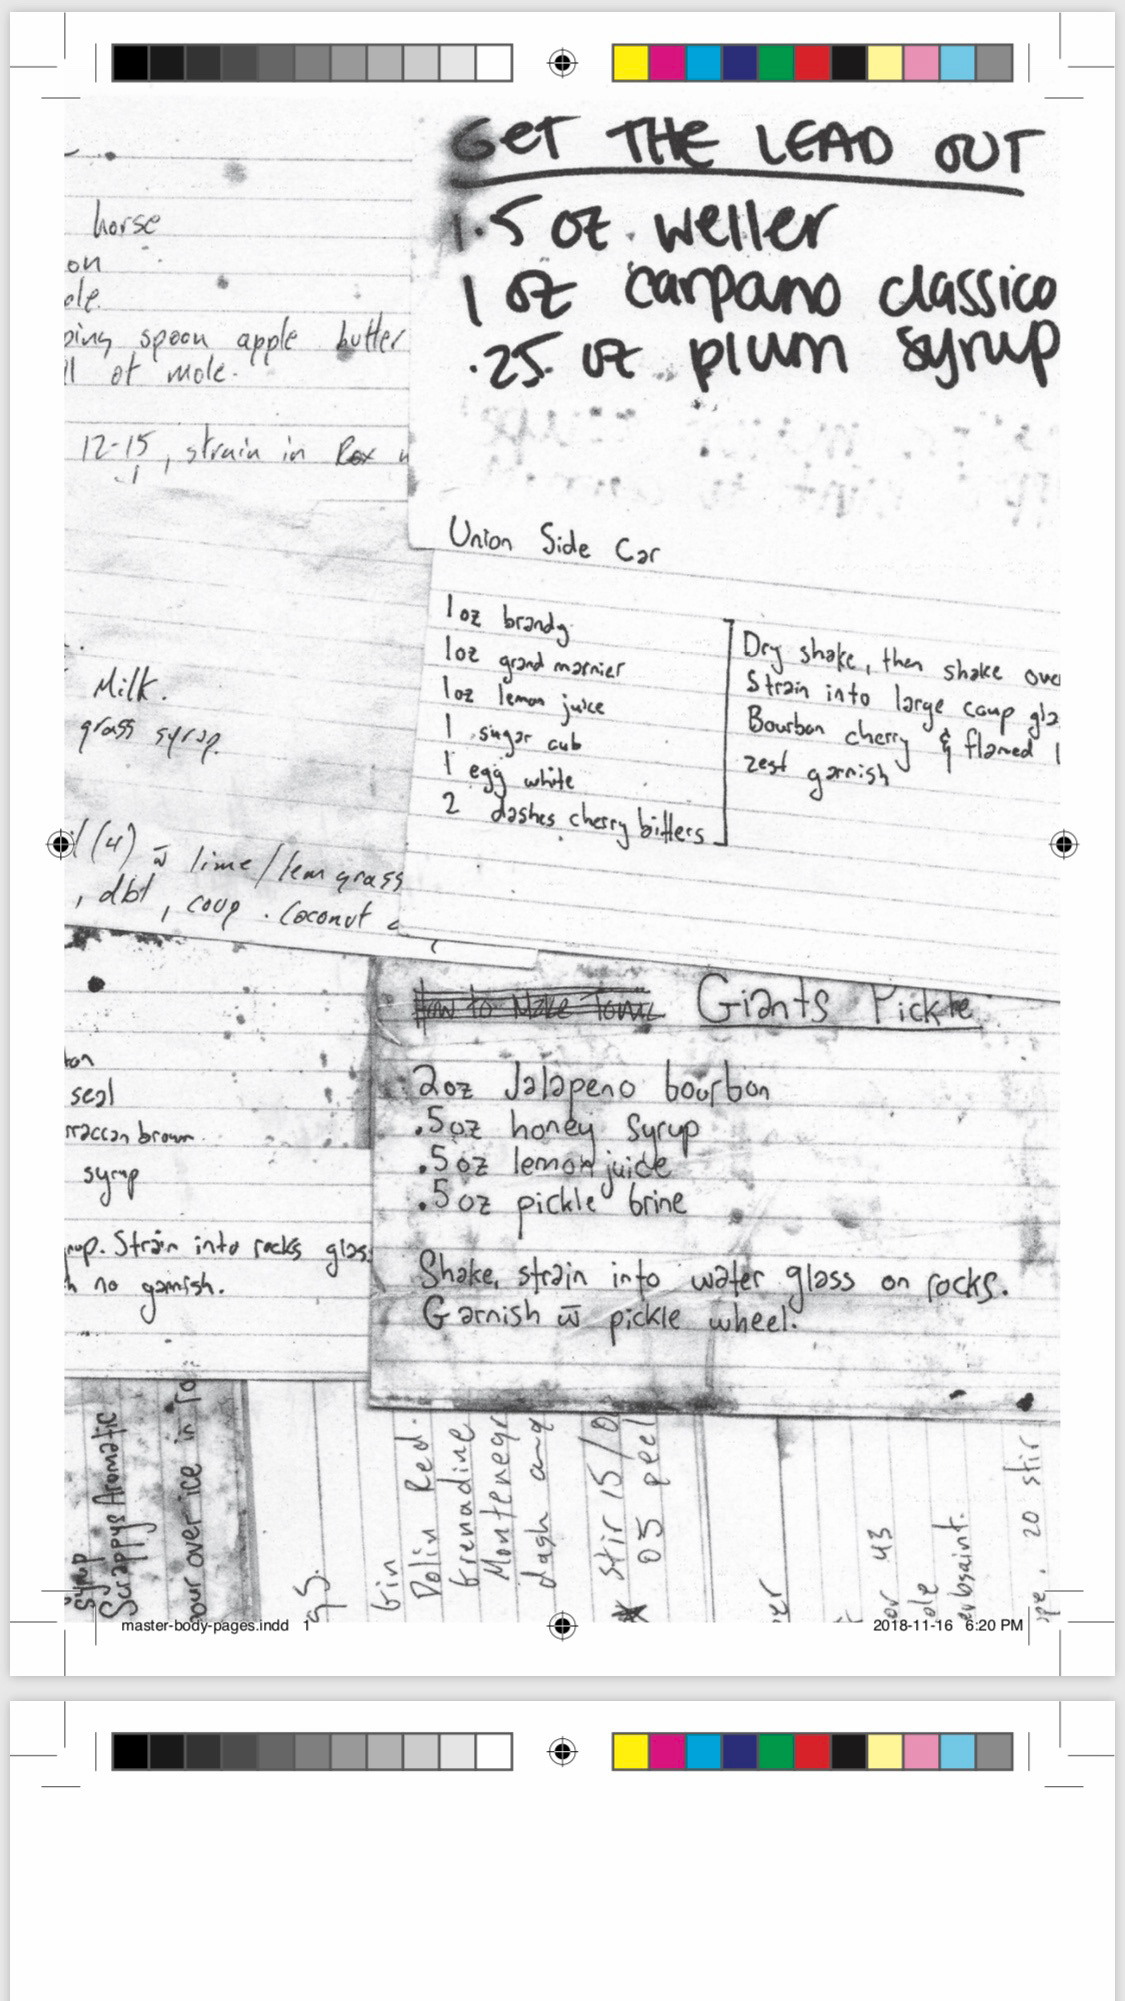 GET THE LEAD OUT
1.5 oz. weller
1 oz carpano classico
.25 oz plum syrup
horse
on
ole.
ping spoon apple butter
ll of mole.
12-15, strain in Rox
Milk.
grass syrup.
(4) w̄ lime/lem grass
, dbl, coup. Coconut
Union Side Car
1oz brandy
1oz grand marnier
1oz lemon juice
1 sugar cub
1 egg white
2 dashes cherry bitters
Dry shake, then shake over
Strain into large coup gla
Bourbon cherry & flamed
zest garnish
seal
rraccan brown
syrup
up. Strain into rocks glas
h no garnish.
How to Make Tonic Giants Pickle
2oz Jalapeno bourbon
.5oz honey syrup
.5oz lemon juice
.5oz pickle brine
Shake, strain into water glass on rocks.
Garnish w̄ pickle wheel.
syrup
Scrappys Aromatic
our over ice in ro
gs.
Gin
Dolin Red.
Grenadine
Montenegr
dash ang
* stir 15/0
05 peel
er
or 43
ole
erbsaint.
pe, 20 stir
master-body-pages.indd 1
2018-11-16 6:20 PM